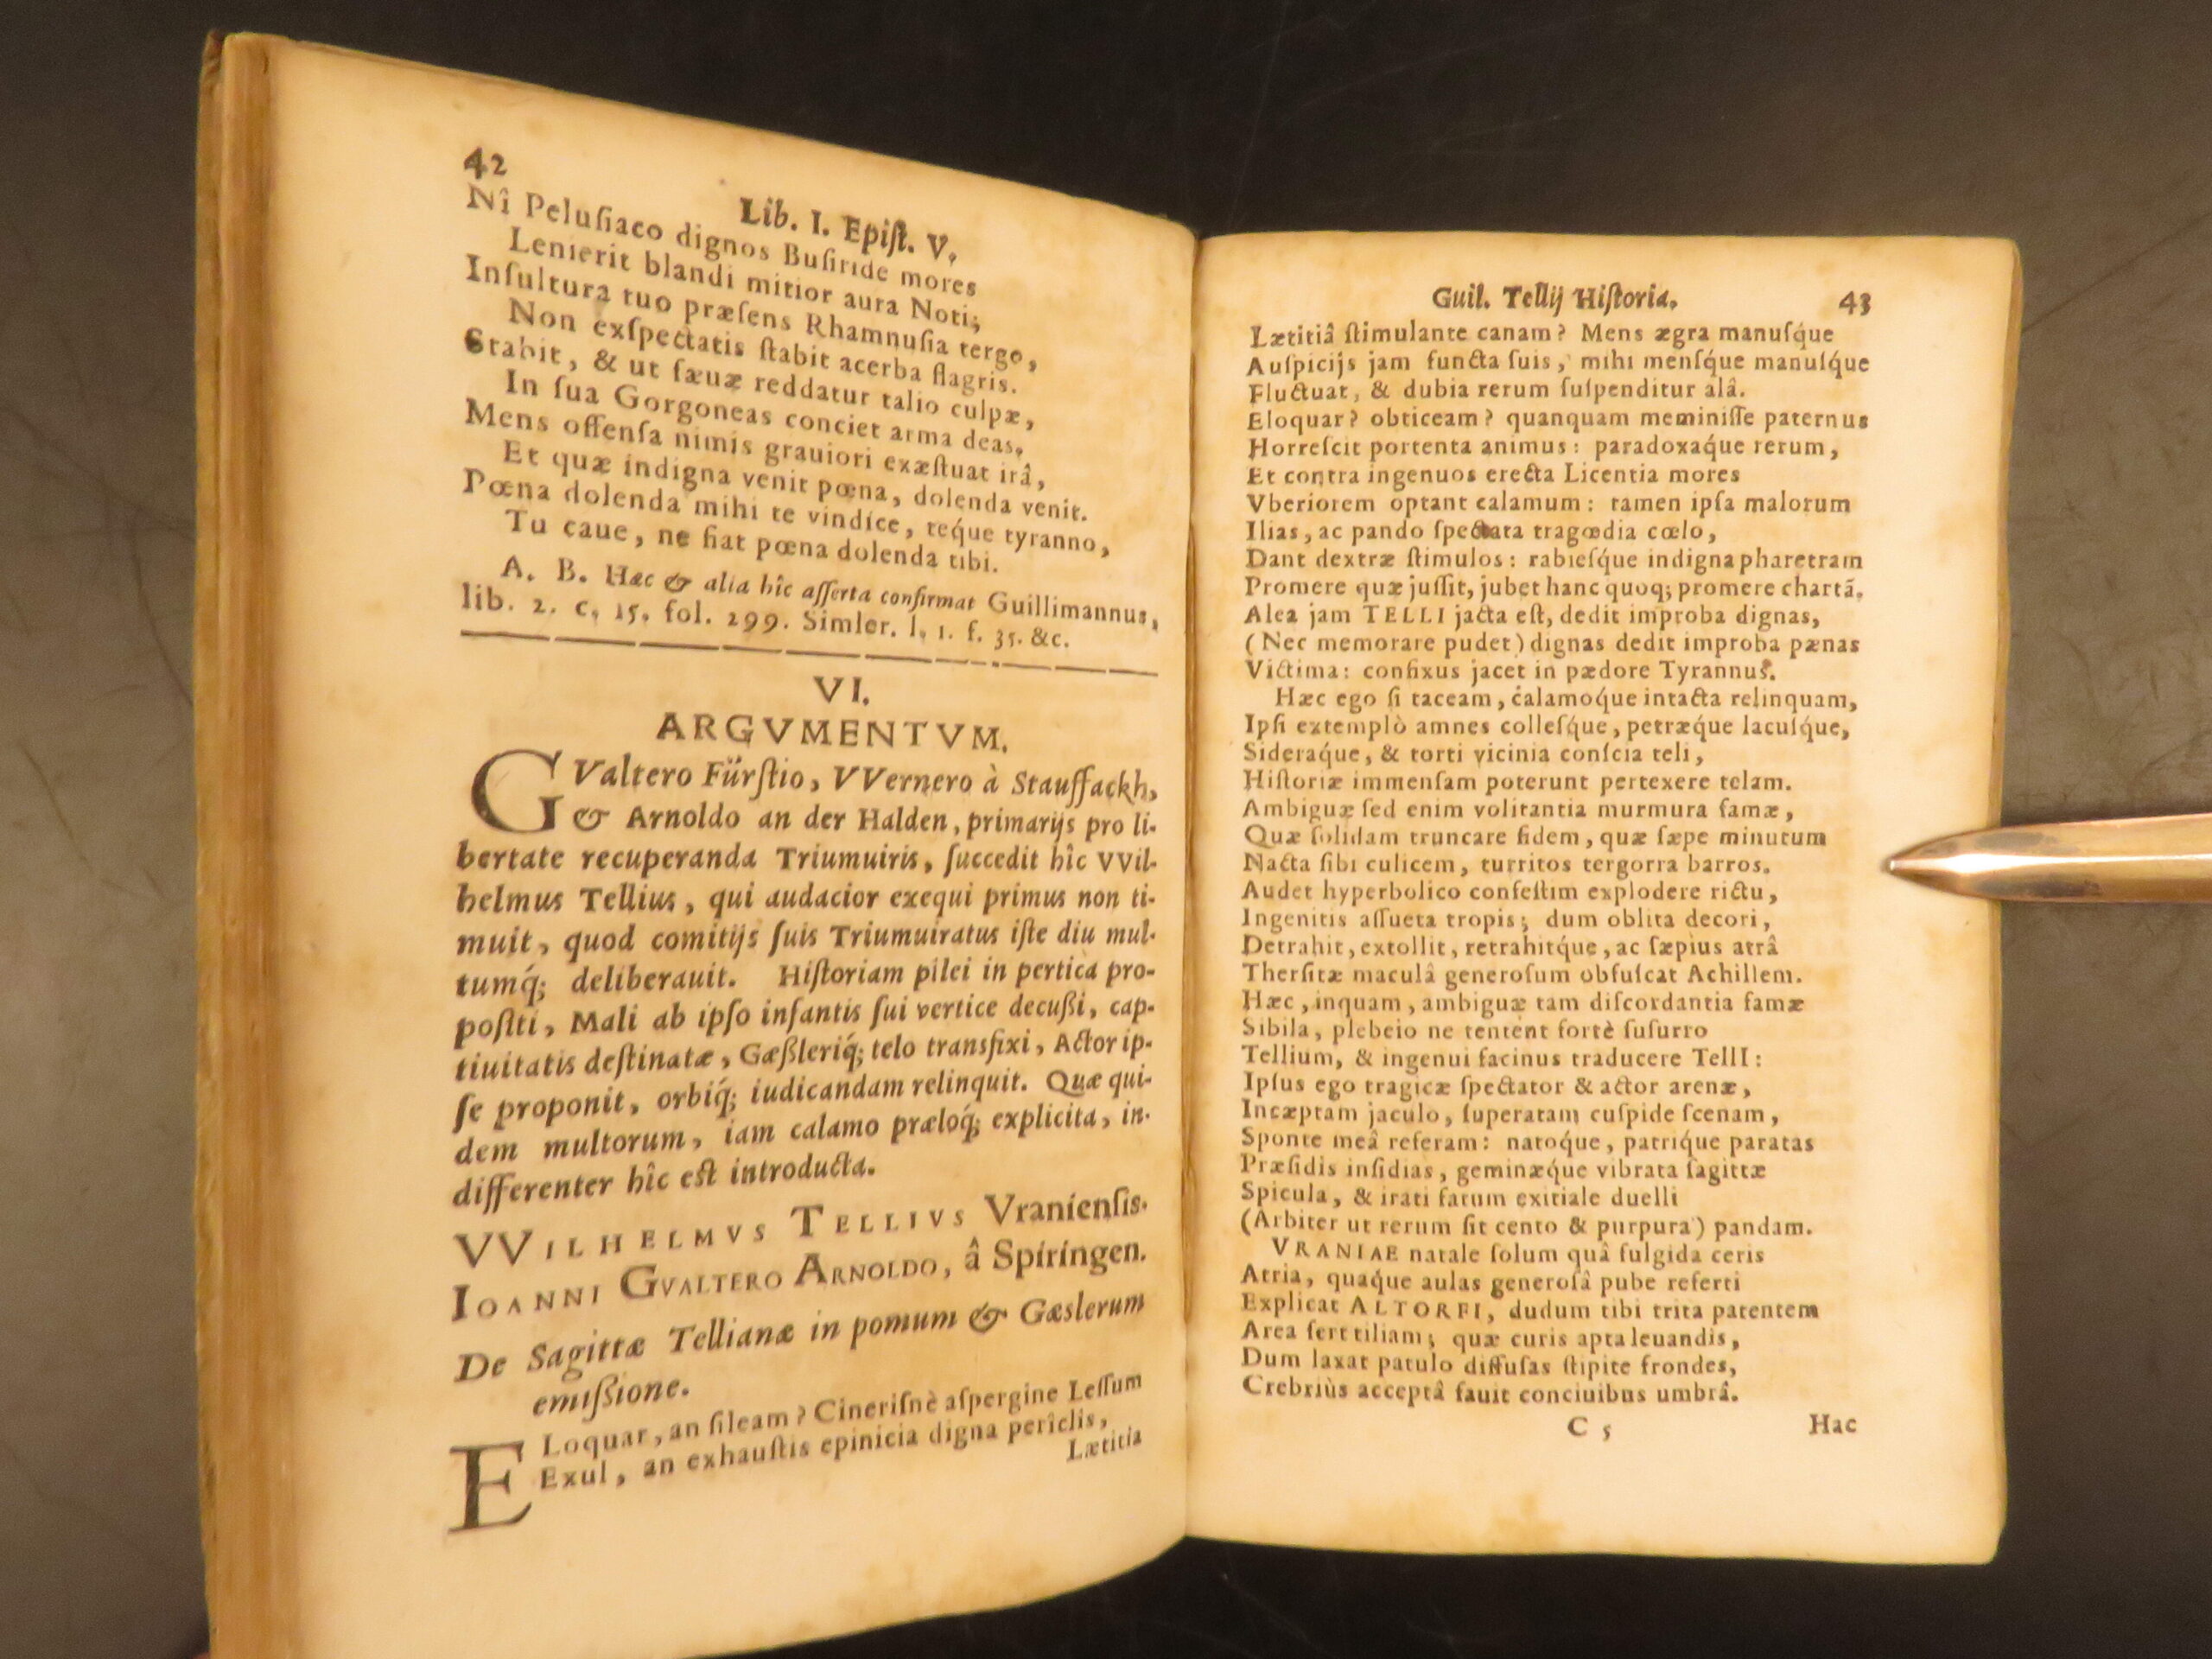 42
Lib. I. Epiſt. V.
Nî Peluſiaco dignos Buſiride mores
Lenierit blandi mitior aura Noti;
Inſultura tuo præſens Rhamnuſia tergo,
Non exſpectatis ſtabit acerba flagris.
Stabit, & ut ſæuæ reddatur talio culpæ,
In ſua Gorgoneas conciet arma deas,
Mens offenſa nimis grauiori exæſtuat irâ,
Et quæ indigna venit pœna, dolenda venit.
Pœna dolenda mihi te vindice, teq́ue tyranno,
Tu caue, ne fiat pœna dolenda tibi.
A. B. Hæc & alia hîc aſſerta confirmat Guillimannus,
lib. 2. c. 15. fol. 299. Simler. l. 1. f. 35. &c.
VI.
ARGVMENTVM.
GValtero Fürſtio, VVernero à Stauffackh,
& Arnoldo an der Halden, primarijs pro li-
bertate recuperanda Triumuiris, ſuccedit hîc VVil-
helmus Tellius, qui audacior exequi primus non ti-
muit, quod comitijs ſuis Triumuiratus iſte diu mul-
tumq́; deliberauit. Hiſtoriam pilei in pertica pro-
poſiti, Mali ab ipſo infantis ſui vertice decußi, cap-
tiuitatis deſtinatæ, Gæßleriq́; telo transfixi, Actor ip-
ſe proponit, orbiq́; iudicandam relinquit. Quæ qui-
dem multorum, iam calamo præloq́; explicita, in-
differenter hîc eſt introducta.
VVILHELMVS TELLIVS Vranienſis.
IOANNI GVALTERO ARNOLDO, â Spiringen.
De Sagittæ Tellianæ in pomum & Gæslerum
emißione.
ELoquar, an ſileam? Cineriſnè aſpergine Leſſum
Exul, an exhauſtis epinicia digna periclis,
Lætitia
Guil. Tellij Hiſtoria.
43
Lætitiâ ſtimulante canam? Mens ægra manuſq́ue
Auſpicijs jam functa ſuis, mihi menſq́ue manuſq́ue
Fluctuat, & dubia rerum ſuſpenditur alâ.
Eloquar? obticeam? quanquam meminiſſe paternus
Horreſcit portenta animus: paradoxaq́ue rerum,
Et contra ingenuos erecta Licentia mores
Vberiorem optant calamum: tamen ipſa malorum
Ilias, ac pando ſpectata tragœdia cœlo,
Dant dextræ ſtimulos: rabieſq́ue indigna pharetram
Promere quæ juſſit, jubet hanc quoq; promere chartã.
Alea jam TELLI jacta eſt, dedit improba dignas,
(Nec memorare pudet) dignas dedit improba pænas
Victima: confixus jacet in pædore Tyrannus.
Hæc ego ſi taceam, calamoq́ue intacta relinquam,
Ipſi extemplò amnes colleſq́ue, petræq́ue lacuſq́ue,
Sideraq́ue, & torti vicinia conſcia teli,
Hiſtoriæ immenſam poterunt pertexere telam.
Ambiguæ ſed enim volitantia murmura famæ,
Quæ ſolidam truncare fidem, quæ ſæpe minutum
Nacta ſibi culicem, turritos tergorra barros.
Audet hyperbolico confeſtim explodere rictu,
Ingenitis aſſueta tropis; dum oblita decori,
Detrahit, extollit, retrahitq́ue, ac ſæpius atrâ
Therſitæ maculâ generoſum obfuſcat Achillem.
Hæc, inquam, ambiguæ tam diſcordantia famæ
Sibila, plebeio ne tentent fortè ſuſurro
Tellium, & ingenui facinus traducere TellI:
Ipſus ego tragicæ ſpectator & actor arenæ,
Incæptam jaculo, ſuperatam cuſpide ſcenam,
Sponte meâ referam: natoq́ue, patriq́ue paratas
Præſidis inſidias, geminæq́ue vibrata ſagittæ
Spicula, & irati fatum exitiale duelli
(Arbiter ut rerum ſit cento & purpura) pandam.
VRANIAE natale ſolum quâ fulgida ceris
Atria, quaq́ue aulas generoſâ pube referti
Explicat ALTORFI, dudum tibi trita patentem
Area fert tiliam; quæ curis apta leuandis,
Dum laxat patulo diffuſas ſtipite frondes,
Crebriùs acceptâ fauit conciuibus umbrâ.
C 5
Hac